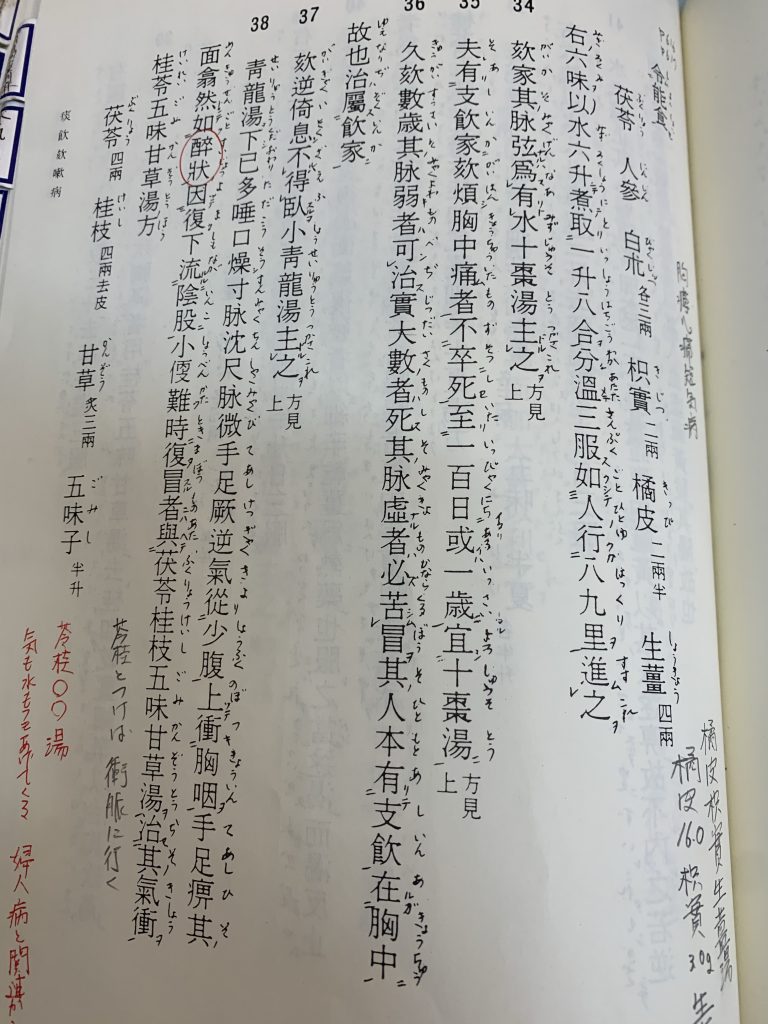 令能食
茯苓 人參 白朮各三兩 枳實二兩 橘皮二兩半 生薑四兩
右六味以水六升煮取一升八合分溫三服如人行八九里進之
34
欬家其脉弦爲有水十棗湯主之方見上
35
夫有支飲家欬煩胸中痛者不卒死至一百日或一歲宜十棗湯方見上
36
久欬數歲其脉弱者可治實大數者死其脉虛者必苦冒其人本有支飲在胸中
故也治屬飲家
37
欬逆倚息不得臥小青龍湯主之方見上
38
青龍湯下已多唾口燥寸脉沈尺脉微手足厥逆氣從少腹上衝胸咽手足痹其
面翕然如醉狀因復下流陰股小便難時復冒者與茯苓桂枝五味甘草湯治其氣衝
桂苓五味甘草湯方
茯苓四兩 桂枝四兩去皮 甘草炙三兩 五味子半升
痰飲欬嗽病
胸痹心痛短気病
橘皮枳實生姜湯
橘皮16.0 枳實30g 生
苓桂とつけば 衝脈に行く
苓桂〇〇湯
婦人病と関